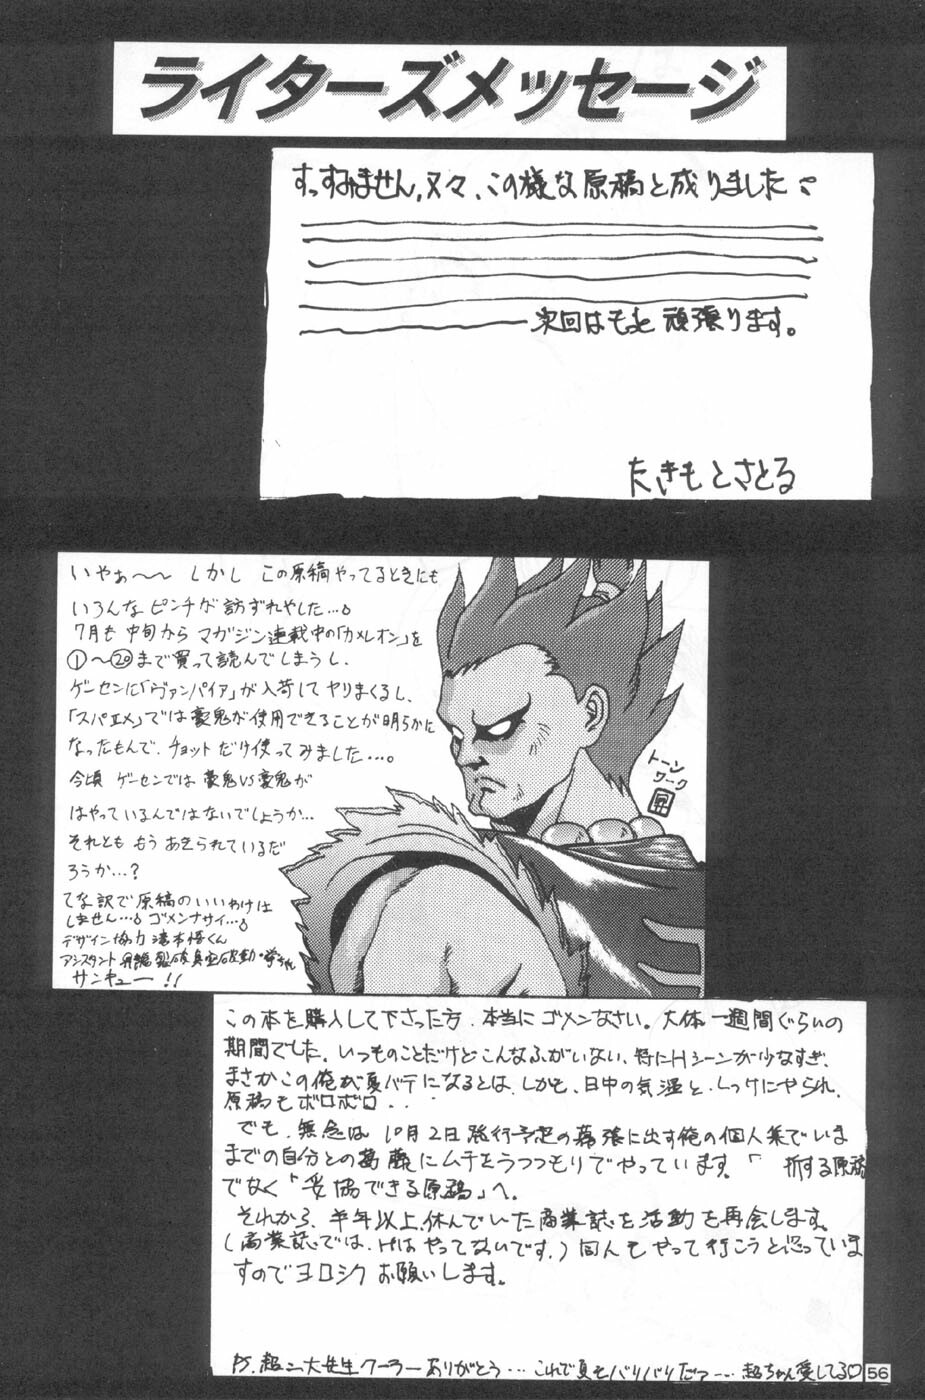 ライターズメッセージ
すっすみません、又々、この様な原稿と成りました
次回はもっと頑張ります。
たきもとさとる
いやぁ〜〜 しかし この原稿やってるときにも
いろんなピンチが訪ずれやした…。
7月も中旬から マガジン連載中の「カメレオン」を
①〜⑳まで買って読んでしまうし、
ゲーセンに「ヴァンパイア」が入荷してヤりまくるし、
「スパⅡX」では豪鬼が使用できることが明らかに
なったもんで、チョットだけ使ってみました…。
今頃 ゲーセンでは豪鬼VS豪鬼が
はやっているんではないでしょうか…
それとも もう あきられているだ
ろうか…?
てな訳で原稿のいいわけは
しません…。ゴメンナサイ…。
デザイン協力 滝本悟くん
アシスタント
サンキュー!!
トーン
ワーク
昇
この本を購入して下さった方、本当にゴメンなさい。大体一週間ぐらいの
期間でした。いつものことだけどこんなふがいない、特にHシーンが少なすぎ、
まさかこの俺が夏バテになるとは、しかも、日中の気温と、しっけにやられ、
原稿もボロボロ・・
でも、無念は10月2日発行予定の幕張に出す俺の個人集でいま
までの自分との葛藤にムチをうつつもりでやっています。「 折する原稿
でなく「妥協できる原稿」へ。
それから、半年以上休んでいた商業誌を活動を再会します。
(商業誌では、Hはやってないです。)同人もやって行こうと思っていま
すのでヨロシクお願いします。
P.S. 超二大先生クーラーありがとう… これで夏もバリバリだっ… 超ちゃん愛してる♡
56